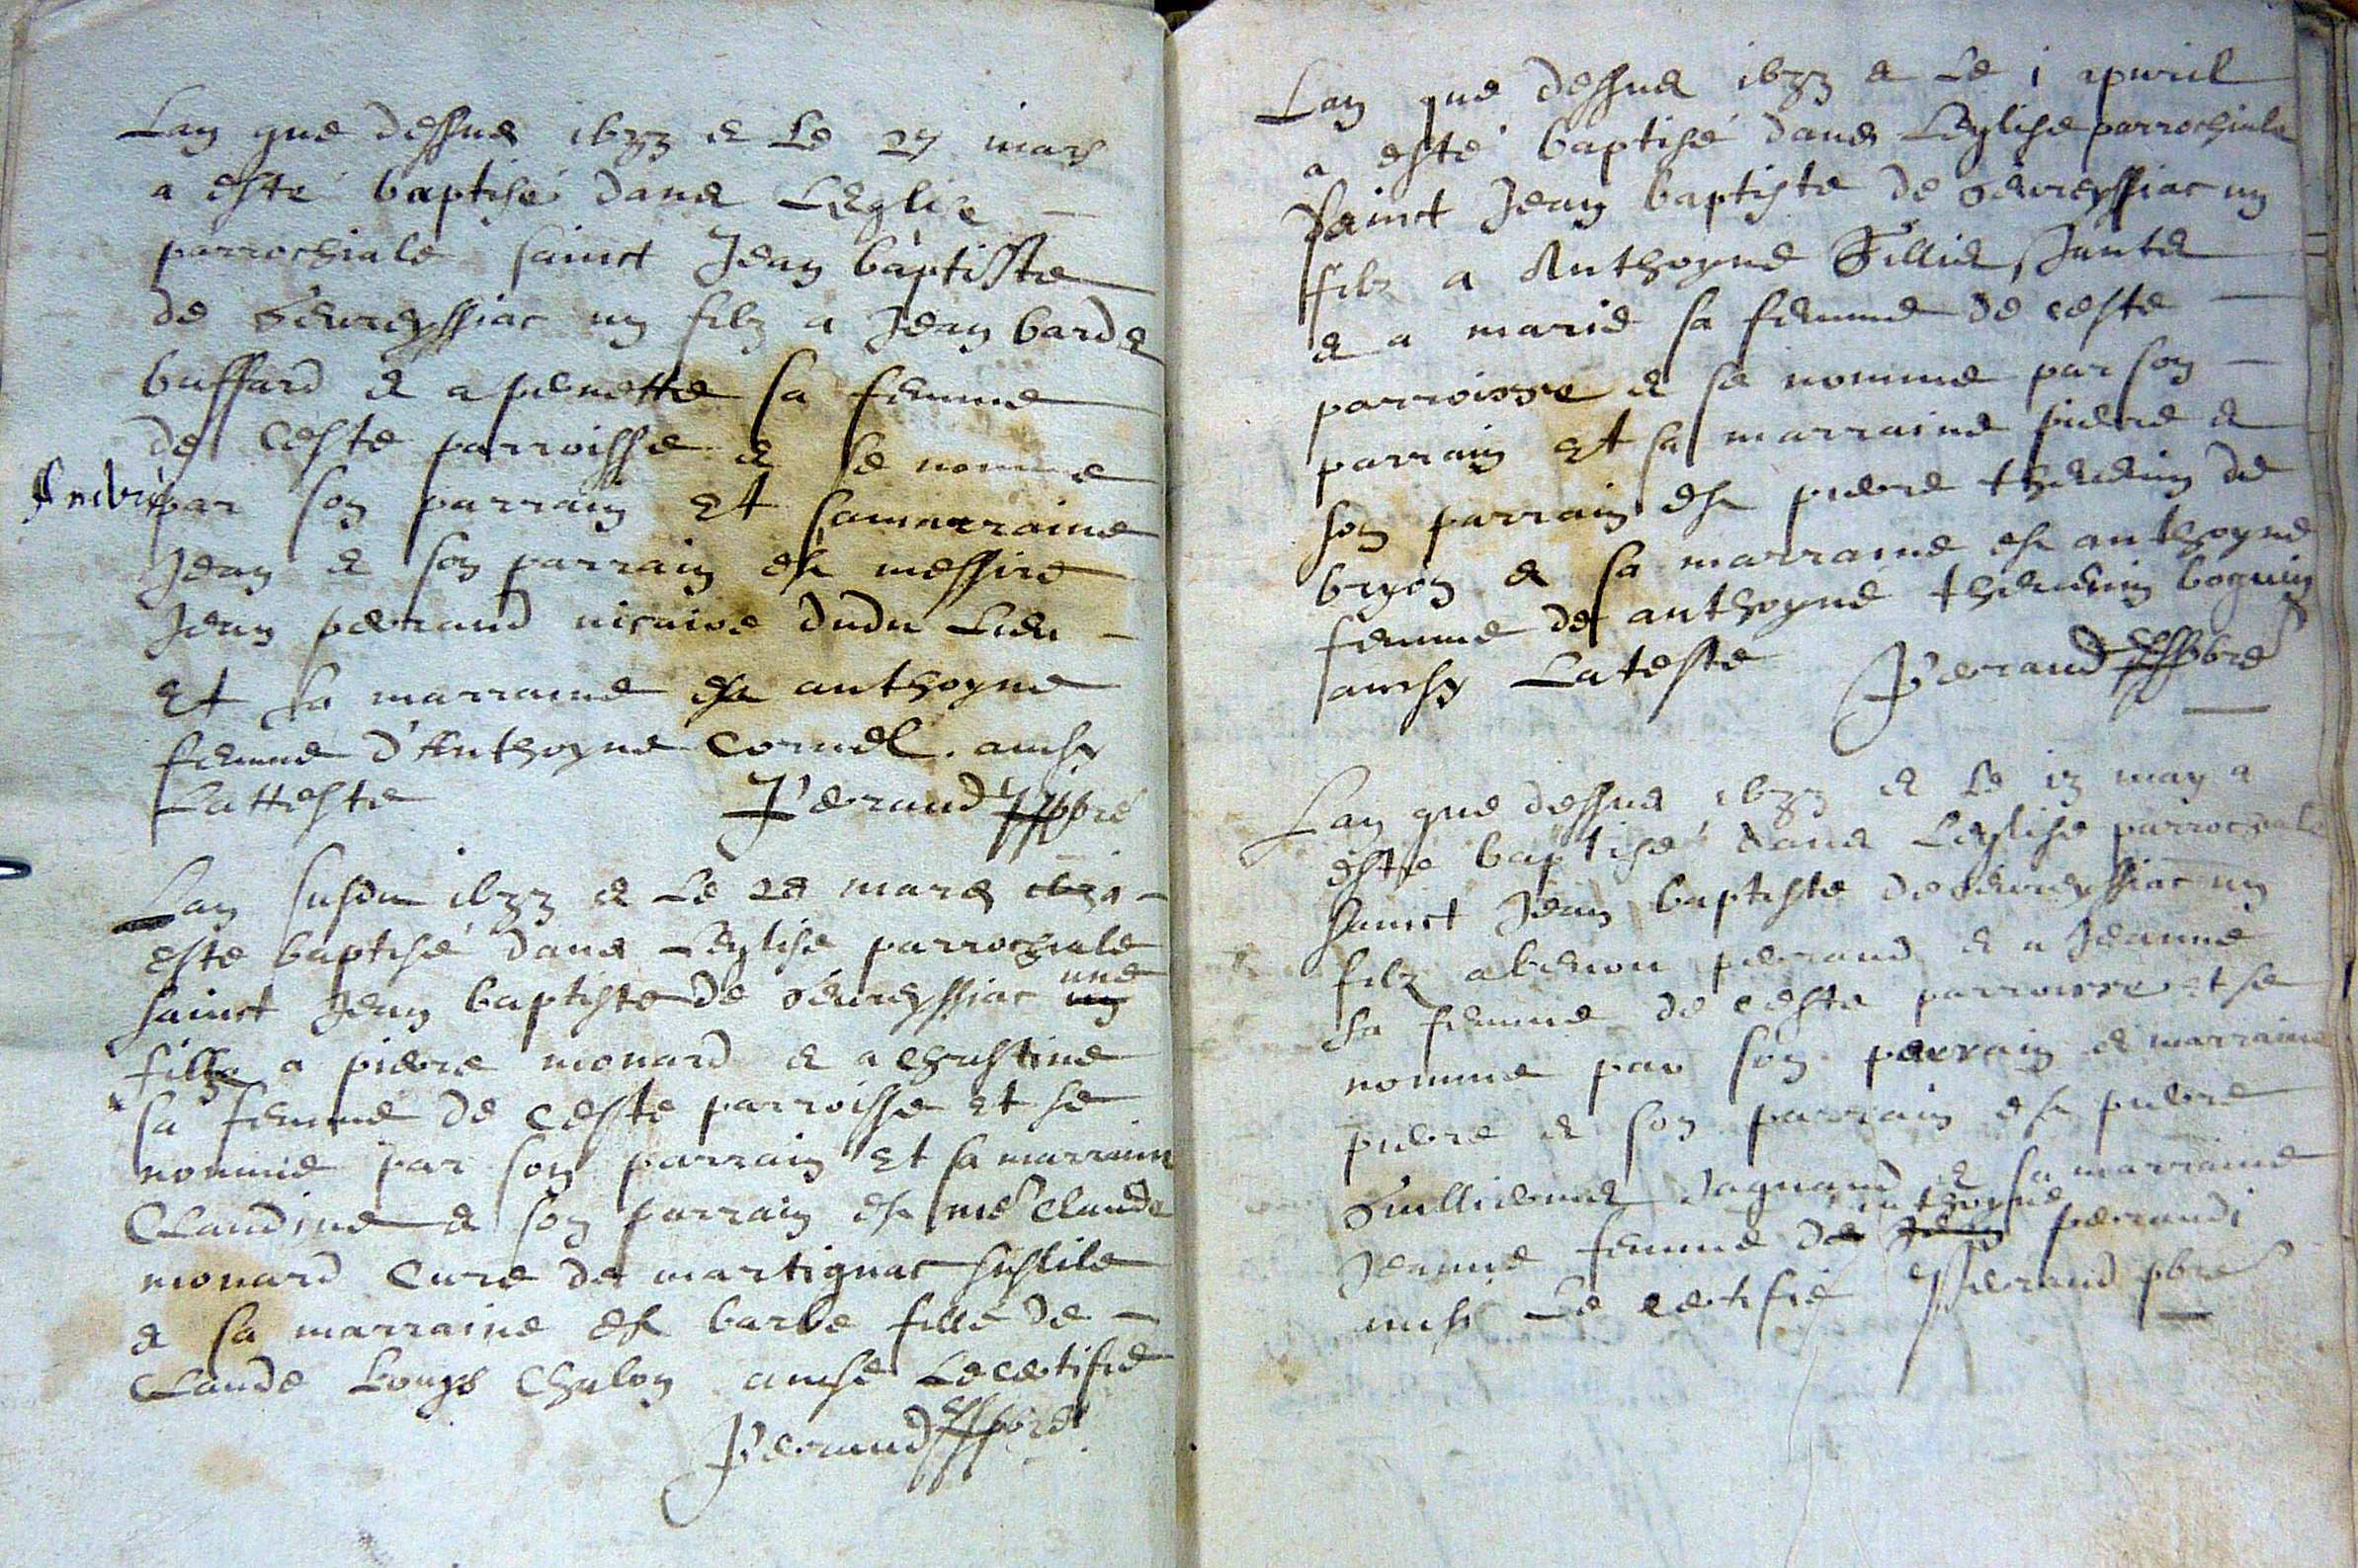 Lan que dessus 1633 & Le 27 mars
a esté baptisé dans Leglize
parrochiale sainct Jean baptiste
de Geureyssiac un filz a Jean barde
buffard & a penette sa femme
de ceste parroisse & se nomme
par son parrain Et sa marraine
Jean & son parrain est messire
Jean perraud vicaire dudu Lieu
Et sa marraine est anthoyne
femme d'Anthoyne Cornel. ainsy
Latteste Perraud pbre
Lan susdu 1633 & Le 28 mars a
este baptisé dans Leglise parrochiale
sainct Jean baptiste de Geureyssiac une
fille a pierre monard & a christine
sa femme de ceste parroisse et se
nomme par son parrain Et sa marraine
Claudine & son parrain est mre Claude
monard Curé de martignac
& sa marraine est barbe fille de
Claude Louys Chalon ainse Le certifie
Perraud pbre
Lan que dessus 1633 & Le 1 apvril
a esté baptisé dans Leglise parrochiale
sainct Jean baptiste de Geureyssiac un
filz a Anthoyne
& a marie sa femme de ceste
parroisse & se nomme par son
parrain Et sa marraine pierre &
son parrain est pierre thevenin de
bryon & sa marraine est anthoyne
femme de anthoyne thevenin boguin
ainsy Lateste Perraud pbre
Lan que dessus 1633 & Le 13 may a
esté baptisé dans Leglise parrochiale
sainct Jean baptiste de Geureyssiac un
filz a benoit perraud & a Jeanne
sa femme de ceste parroisse et se
nomme par son parrain & marraine
pierre & son parrain est pierre
& sa marraine
Jeanne femme de anthoyne perraud
ainsi Le certifie Perraud pbre